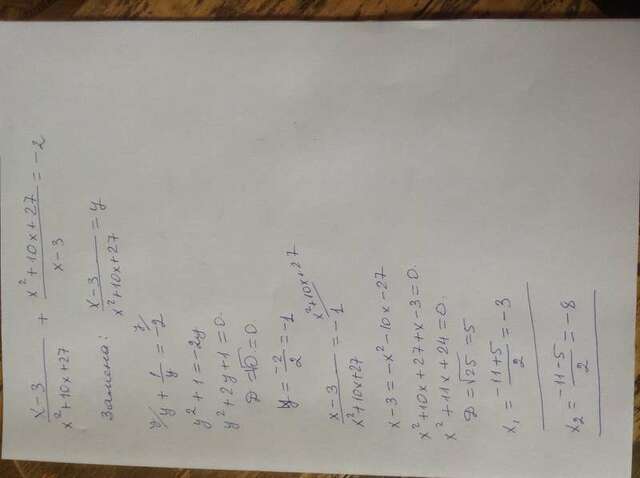 x-3/x²+10x+27 + x²+10x+27/x-3 = -2
Замена: x-3/x²+10x+27 = y
y/ y + 1/y = -2 /y
y² + 1 = -2y
y² + 2y + 1 = 0.
D = √0 = 0
y = -2/2 = -1
x-3/x²+10x+27 = -1 /x²+10x+27
x-3 = -x²-10x-27
x²+10x+27+x-3=0.
x²+11x+24=0.
D = √25 = 5
x₁ = -11+5/2 = -3
x₂ = -11-5/2 = -8